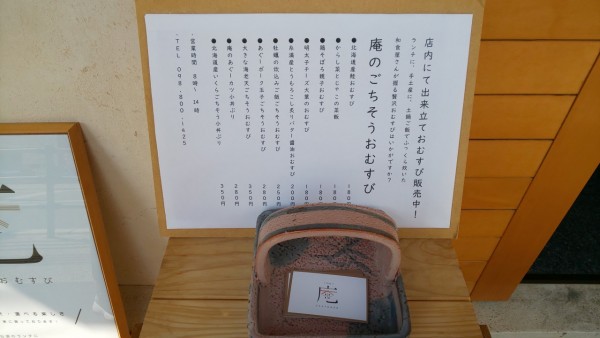 店内にて出来立ておむすび販売中！
ランチに、手土産に、土鍋ご飯でふっくら炊いた
和食屋さんが握る贅沢おむすびはいかがですか？
庵のごちそうおむすび
●北海道産鮭おむすび
180
●からし菜とじゃこの菜飯
180
●鶏そぼろ親子おむすび
180
●明太子チーズ大葉のおむすび
180
●糸満産とうもろこし炙りバター醤油おむすび
200円
●牡蠣の炊込みご飯ごちそうおむすび
250円
●あぐーポーク玉子ごちそうおむすび
250円
●大きな海老天ごちそうおむすび
350円
●庵のあぐーカツ小丼ぶり
280円
●北海道産いくらごちそう小丼ぶり
350円
・営業時間 8時〜14時
・TEL 098-800-1425
庵
おむすび